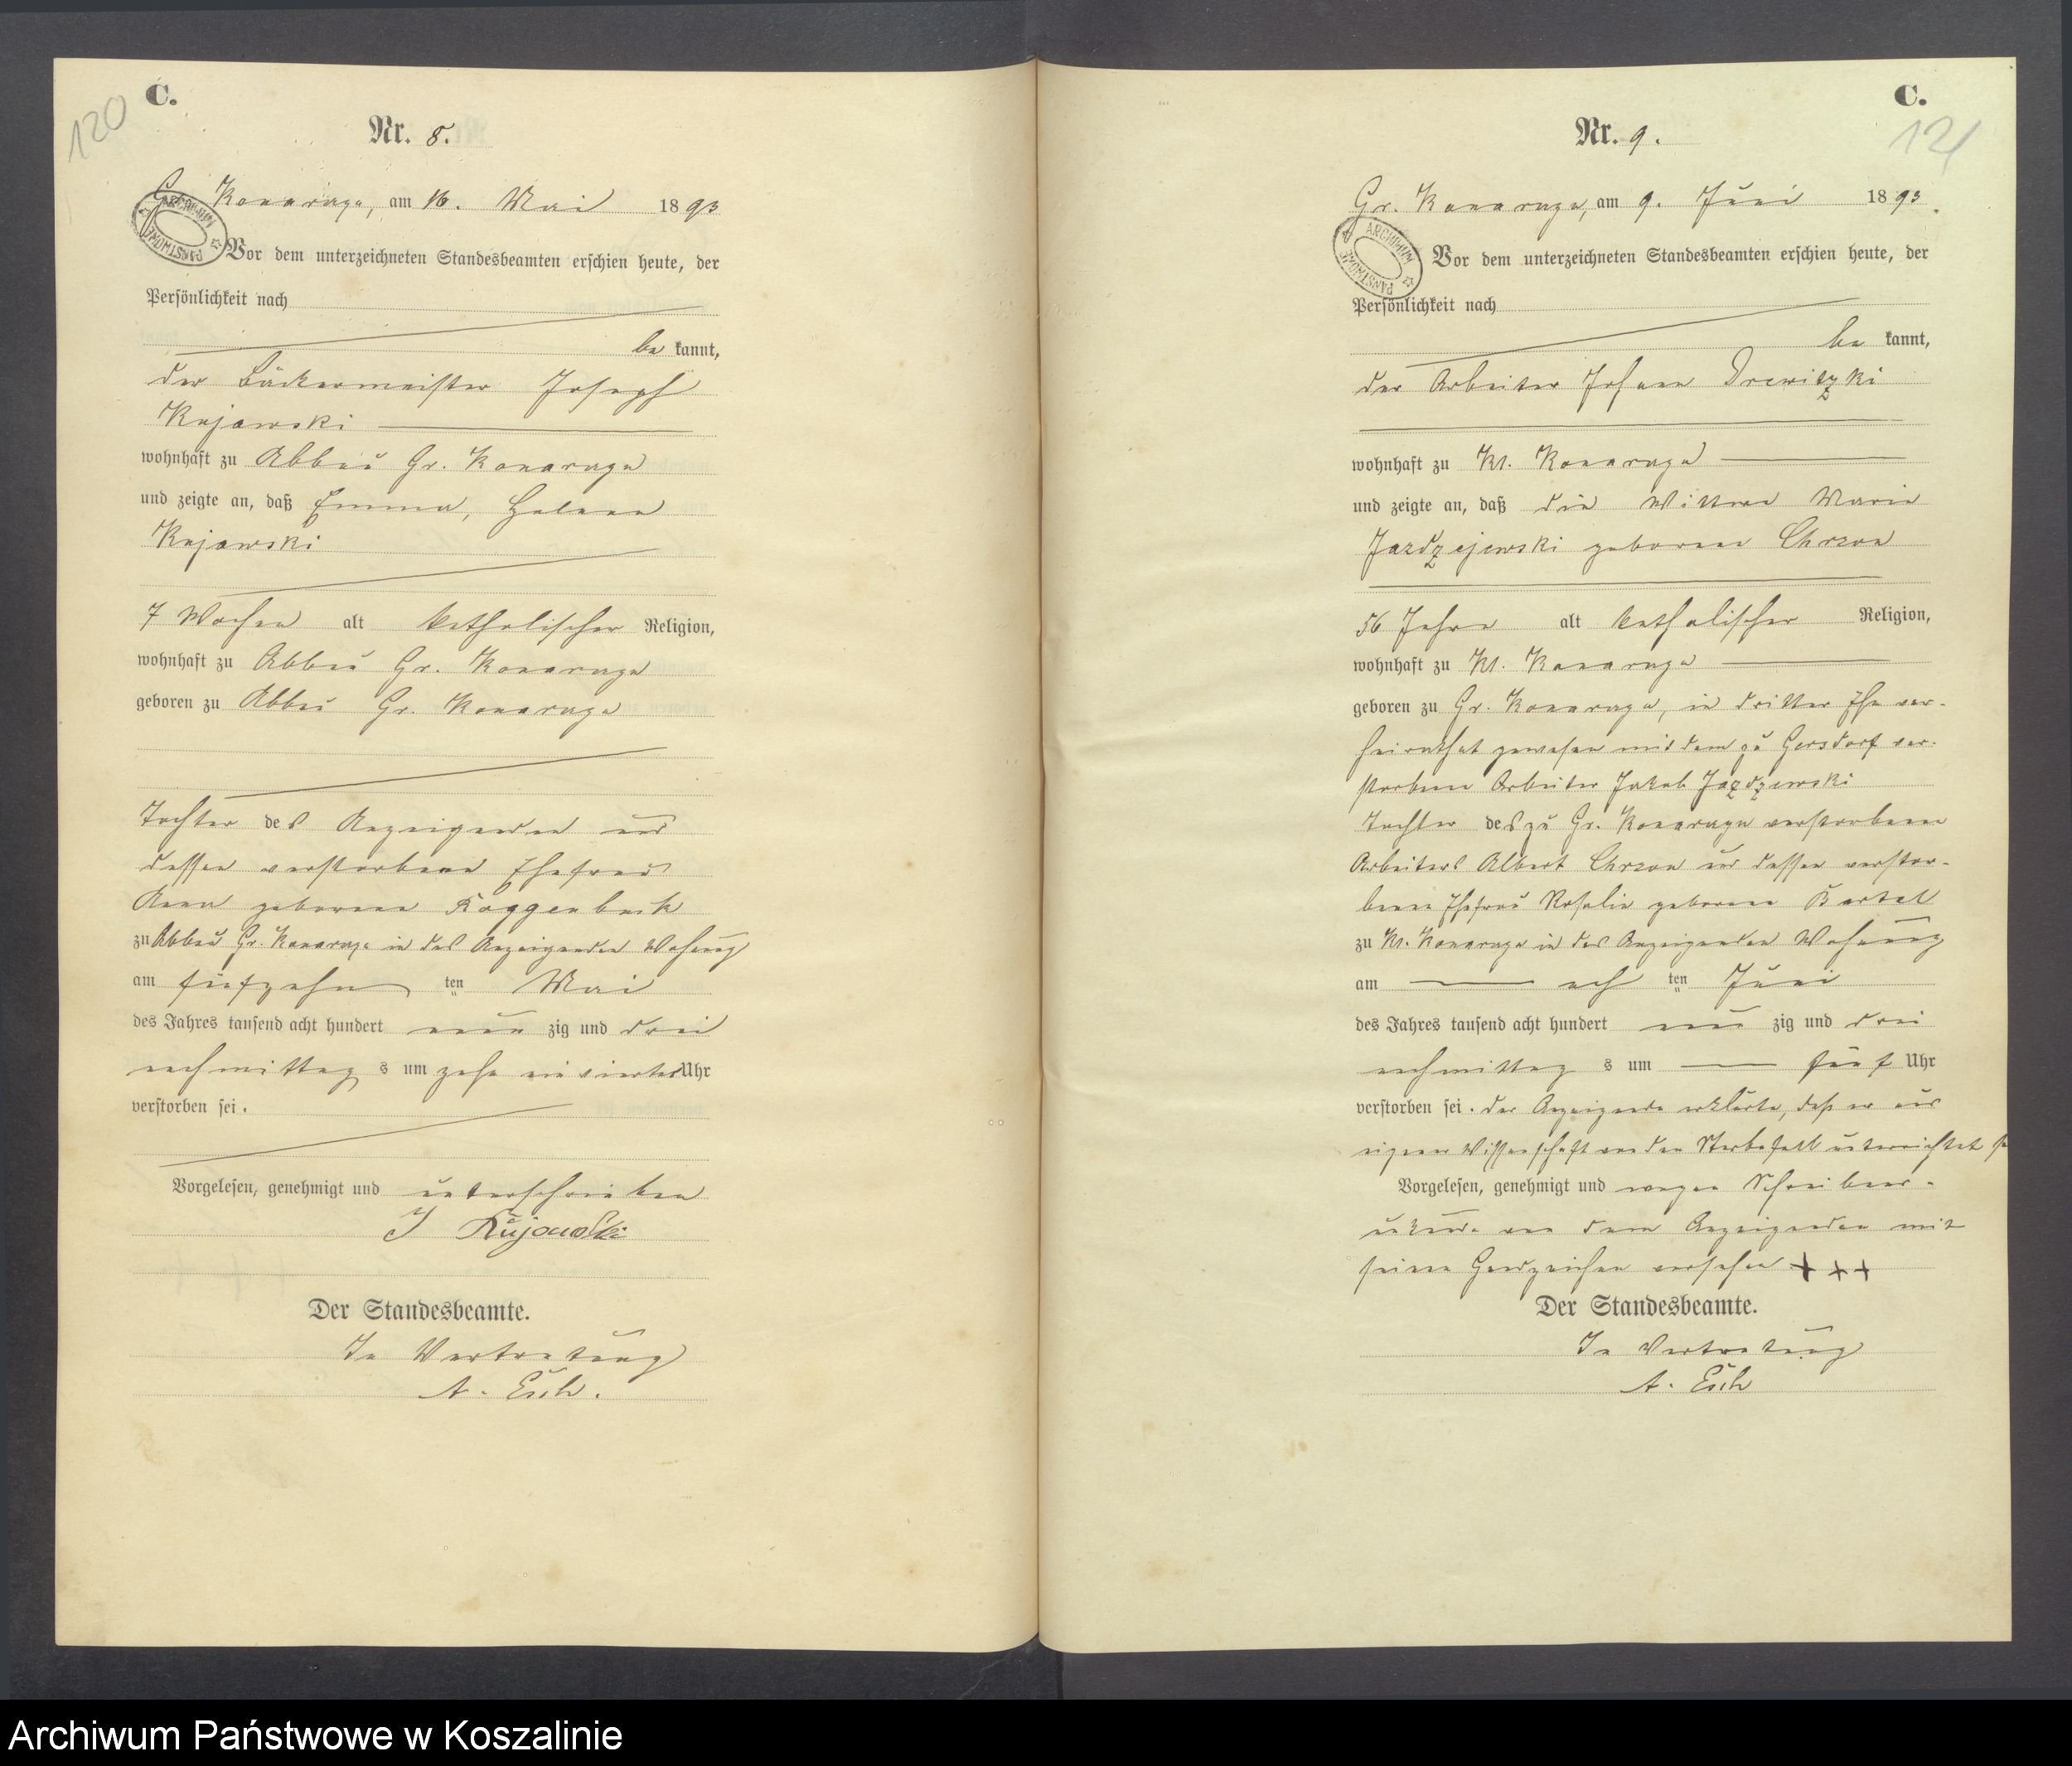 120
C.
Nr. 8.
Gr. Konarzyn, am 16. Mai 1893
ARCHIWUM PAŃSTWOWE
Vor dem unterzeichneten Standesbeamten erschien heute, der
Persönlichkeit nach
be kannt,
der Bäckermeister Joseph
Kujawski
wohnhaft zu Abbau Gr. Konarzyn
und zeigte an, daß Emma, Helene
Kujawski
7 Wochen alt katholischer Religion,
wohnhaft zu Abbau Gr. Konarzyn
geboren zu Abbau Gr. Konarzyn
Tochter des Anzeigenden und
dessen verstorbene Ehefrau
Anna geborene Roggenbuck
zu Abbau Gr. Konarzyn in des Anzeigenden Wohnung
am fünfzehn ten Mai
des Jahres tausend acht hundert neun zig und drei
nachmittag s um zehn ein viertel Uhr
verstorben sei.
Vorgelesen, genehmigt und unterschrieben
J Kujawski
Der Standesbeamte.
In Vertretung
A. Esch.
C.
121
Nr. 9.
Gr. Konarzyn, am 9. Juni 1893.
ARCHIWUM PAŃSTWOWE
Vor dem unterzeichneten Standesbeamten erschien heute, der
Persönlichkeit nach
be kannt,
der Arbeiter Johann Drewitzki
wohnhaft zu Kl. Konarzyn
und zeigte an, daß die Wittwe Marie
Jazdzejewski geborene Chrzon
56 Jahre alt katholischer Religion,
wohnhaft zu Kl. Konarzyn
geboren zu Gr. Konarzyn, in dritter Ehe ver-
heirathet gewesen mit dem zu Gersdorf ver-
storbene Arbeiter Jakob Jazdzewski
Tochter des zu Gr. Konarzyn verstorbenen
Arbeiters Albert Chrzon und dessen verstor-
bene Ehefrau Rosalie geborene Bartel
zu Kl. Konarzyn in des Anzeigenden Wohnung
am ach ten Juni
des Jahres tausend acht hundert neun zig und drei
nachmittag s um fünf Uhr
verstorben sei. Der Anzeigende erklärte, daß er aus
eigener Wissenschaft von den Sterbefall unterrichtet sei
Vorgelesen, genehmigt und wegen Schreibens-
unkunde von dem Anzeigenden mit
seinen Handzeichen versehen +++
Der Standesbeamte.
In Vertretung
A. Esch
Archiwum Państwowe w Koszalinie